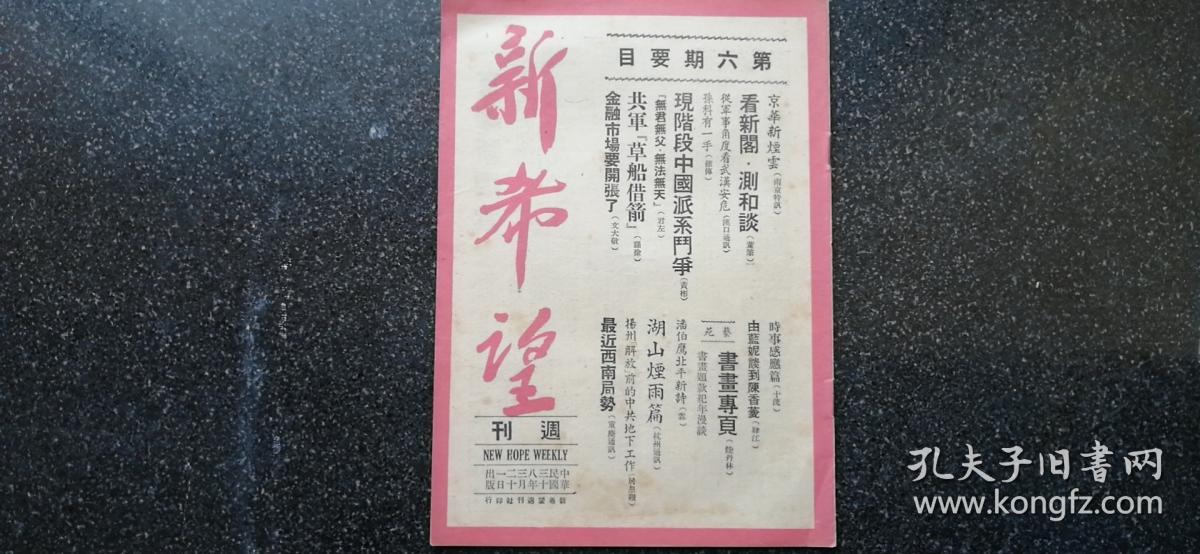 新希望
週刊
NEW HOPE WEEKLY
中華民國三十八年三月二十一日出版
新希望週刊社印行
第六期要目
京華新煙雲（南京特訊）
看新閣·測和談
從軍事角度看武漢安危（漢口通訊）
孫科有一手
現階段中國派系鬥爭（黃彬）
「無君無父·無法無天」（君左）
共軍『草船借箭』
金融市場要開張了（文大敬）
時事感應篇
由藍妮談到陳香菱
藝苑
書畫專頁
書畫題款紀年漫談
潘伯鷹北平新詩
湖山煙雨篇（杭州通訊）
揚州「解放」前的中共地下工作
最近西南局勢（重慶通訊）
孔夫子旧書网
www.kongfz.com